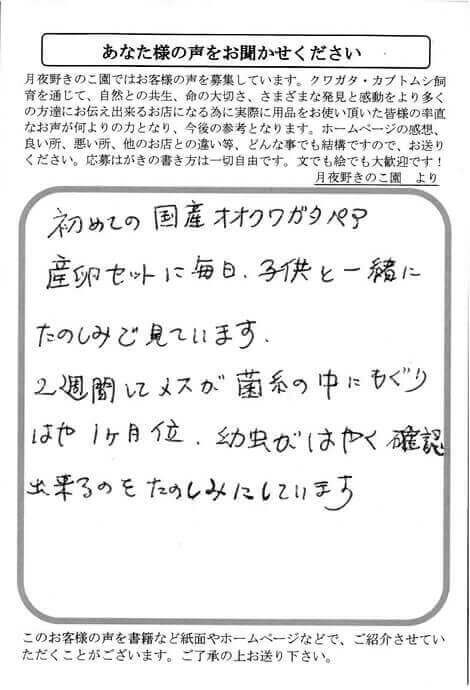 あなた様の声をお聞かせください
月夜野きのこ園ではお客様の声を募集しています。クワガタ・カブトムシ飼
育を通じて、自然との共生、命の大切さ、さまざまな発見と感動をより多く
の方達にお伝え出来るお店になる為に実際に用品をお使い頂いた皆様の率直
なお声が何よりの力となり、今後の参考となります。ホームページの感想、
良い所、悪い所、他のお店との違い等、どんな事でも結構ですので、お送り
ください。応募はがきの書き方は一切自由です。文でも絵でも大歓迎です！
月夜野きのこ園　より
初めての国産オオクワガタペア
産卵セットに毎日、子供と一緒に
たのしみで見ています.
2週間してメスが菌糸の中にもぐり
はや1ヶ月位、幼虫がはやく確認
出来るのをたのしみにしています
このお客様の声を書籍など紙面やホームページなどで、ご紹介させてい
ただくことがございます。ご了承の上お送り下さい。